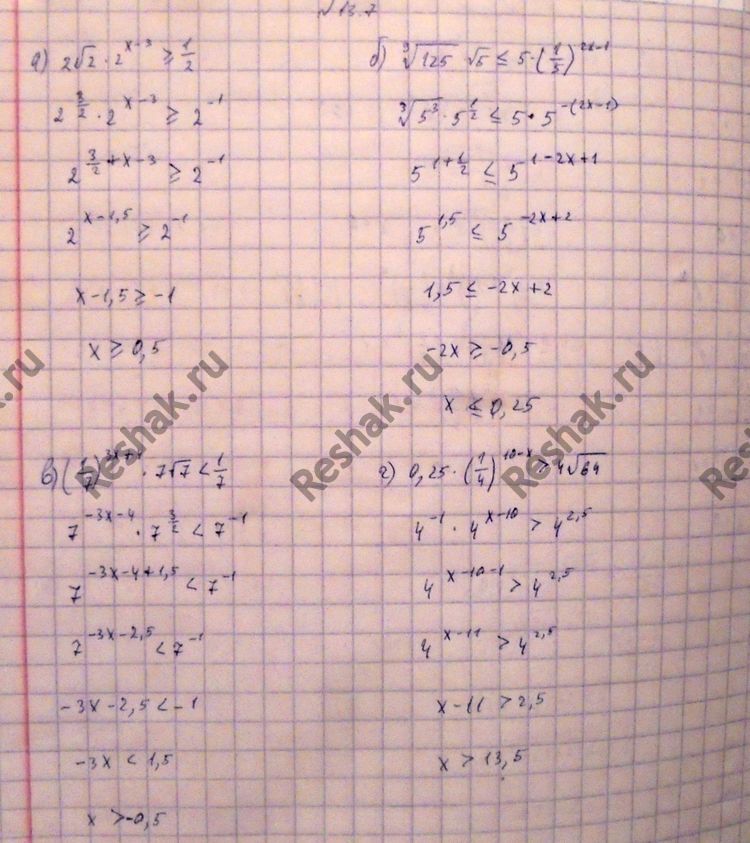 №13.7
а) 2√2 · 2^(x-3) ≥ 1/2
2^(3/2) · 2^(x-3) ≥ 2^(-1)
2^(3/2+x-3) ≥ 2^(-1)
2^(x-1,5) ≥ 2^(-1)
x-1,5 ≥ -1
x ≥ 0,5
б) ∛125 √5 ≤ 5 · (1/5)^(2x-1)
∛(5^3) · 5^(1/2) ≤ 5 · 5^(-(2x-1))
5^(1+1/2) ≤ 5^(1-2x+1)
5^(1,5) ≤ 5^(-2x+2)
1,5 ≤ -2x+2
-2x ≥ -0,5
x ≤ 0,25
в) (1/7)^(3x+4) · 7√7 < 1/7
7^(-3x-4) · 7^(3/2) < 7^(-1)
7^(-3x-4+1,5) < 7^(-1)
7^(-3x-2,5) < 7^(-1)
-3x-2,5 < -1
-3x < 1,5
x > -0,5
г) 0,25 · (1/4)^(10-x) > 4√64
4^(-1) · 4^(x-10) > 4^(2,5)
4^(x-10-1) > 4^(2,5)
4^(x-11) > 4^(2,5)
x-11 > 2,5
x > 13,5
Reshak.ru
Reshak.ru
Reshak.ru